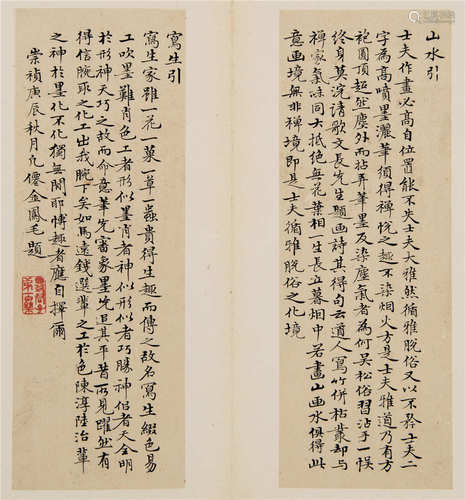 山水引
士夫作畫必高自位置能不失士夫大雅然循雅脫俗又以不務士夫二
字為高噴墨灑筆須得禪悅之趣不染烟火方是士夫雅道乃有方
袍圓頂超然塵外而拈弄筆墨反染塵氣者為何吳松俗習沾手一悮
終身莫浣請歌文長先生題画詩其得句云道人寫竹併枯叢却与
禪家氣味同大抵絕無花葉相一生長立暮烟中若畫山画水俱得此
意画境無非禪境即是士夫循雅脫俗之化境
寫生引
寫生家雖一花一菓一草一蟲貴得生趣而傳之故名寫生綴色易
工吹墨難肖色工者形似墨肖者神似形似者巧勝神侣者天全明
於形神天巧之故而命意筆先審象墨先追其平昔所見躍然有
得信腕取之化工出我腕下矣如馬遠錢選輩之工於色陳淳陸治輩
之神於墨化不化獨無間即博趣者應自擇爾
崇禎庚辰秋月九僊金鳳毛題